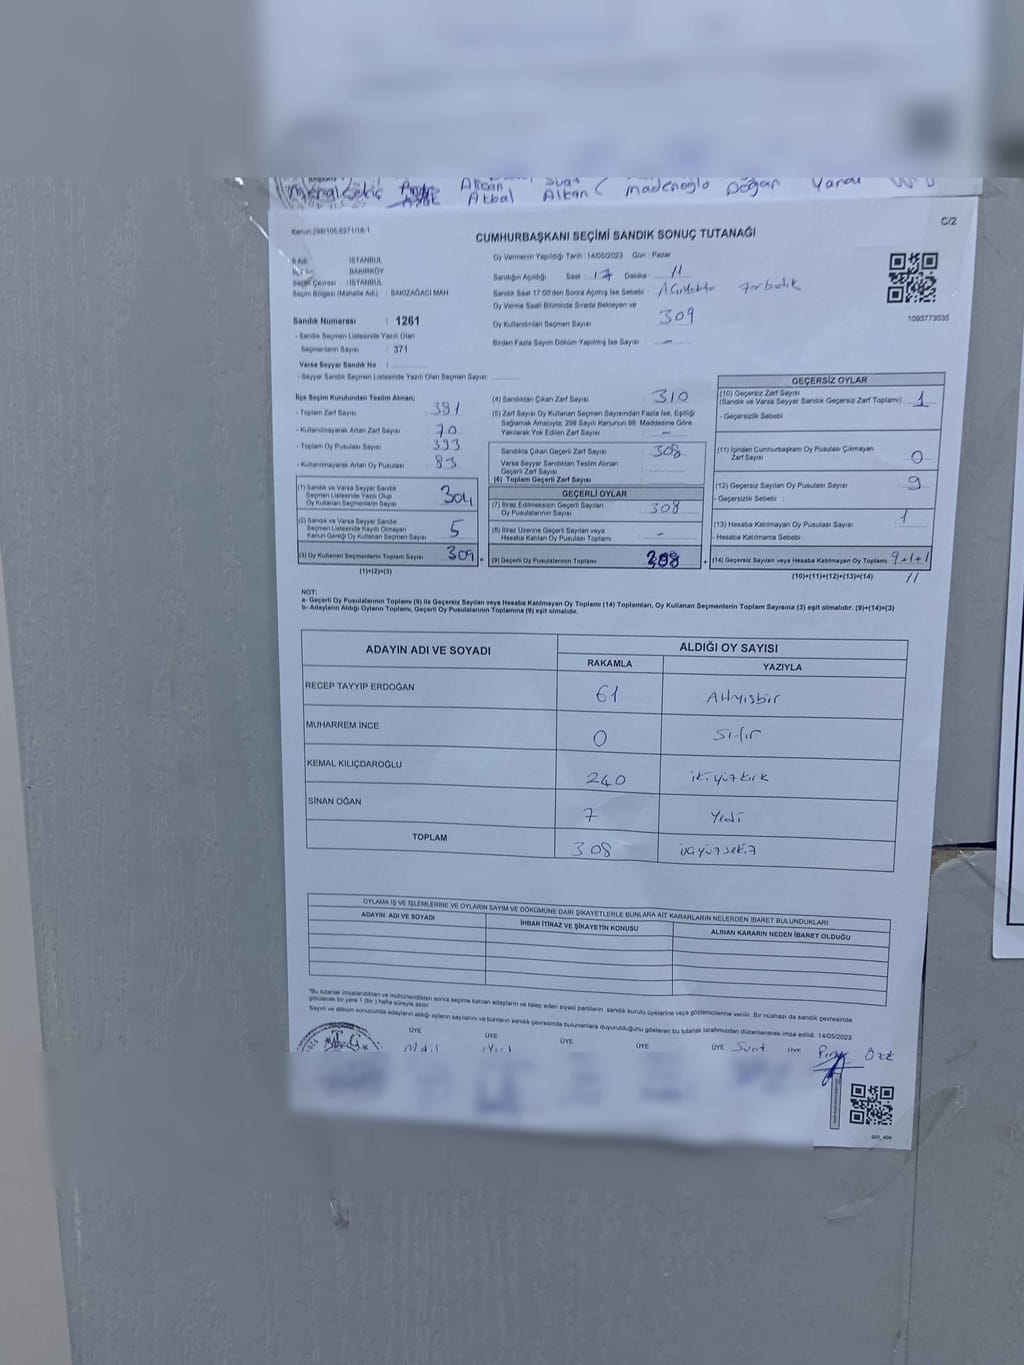 Akcan Suat madenoğlo Doğan
Akbal Altan
C/2
Kanun:298/105,6271/18-1
CUMHURBAŞKANI SEÇİMİ SANDIK SONUÇ TUTANAĞI
İl Adı : İSTANBUL
İlçe Adı : BAKIRKÖY
Seçim Çevresi : İSTANBUL
Seçim Bölgesi (Mahalle Adı) : SAKIZAĞACI MAH.
Oy Vermenin Yapıldığı Tarih : 14/05/2023 Gün : Pazar
Sandığın Açıldığı Saat : 17 Dakika : 11
Sandık Saat 17:00'den Sonra Açılmış İse Sebebi :
Oy Verme Saati Bitiminde Sırada Bekleyen ve
Oy Kullandırılan Seçmen Sayısı 309
Birden Fazla Sayım Döküm Yapılmış İse Sayısı : -
1093773035
Sandık Numarası : 1261
- Sandık Seçmen Listesinde Yazılı Olan
Seçmenlerin Sayısı : 371
Varsa Seyyar Sandık No :
- Seyyar Sandık Seçmen Listesinde Yazılı Olan Seçmen Sayısı:
İlçe Seçim Kurulundan Teslim Alınan;
- Toplam Zarf Sayısı : 381
- Kullanılmayarak Artan Zarf Sayısı : 70
- Toplam Oy Pusulası Sayısı : 393
- Kullanılmayarak Artan Oy Pusulası : 83
(1) Sandık ve Varsa Seyyar Sandık
Seçmen Listesinde Yazılı Olup
Oy Kullanan Seçmenlerin Sayısı 304
(2) Sandık ve Varsa Seyyar Sandık
Seçmen Listesinde Kayıtlı Olmayan
Kanun Gereği Oy Kullanan Seçmen Sayısı 5
(3) Oy Kullanan Seçmenlerin Toplam Sayısı 309 =
(1)+(2)=(3)
(4) Sandıktan Çıkan Zarf Sayısı : 310
(5) Zarf Sayısı Oy Kullanan Seçmen Sayısından Fazla İse, Eşitliği
Sağlamak Amacıyla, 298 Sayılı Kanunun 98. Maddesine Göre
Yakılarak Yok Edilen Zarf Sayısı : -
Sandıkta Çıkan Geçerli Zarf Sayısı 308
Varsa Seyyar Sandıktan Teslim Alınan
Geçerli Zarf Sayısı
(6) Toplam Geçerli Zarf Sayısı
GEÇERLİ OYLAR
(7) İtiraz Edilmeksizin Geçerli Sayılan
Oy Pusulalarının Sayısı 308
(8) İtiraz Üzerine Geçerli Sayılan veya
Hesaba Katılan Oy Pusulası Toplamı -
(9) Geçerli Oy Pusulalarının Toplamı 308 +
GEÇERSİZ OYLAR
(10) Geçersiz Zarf Sayısı
(Sandık ve Varsa Seyyar Sandık Geçersiz Zarf Toplamı) : 1
- Geçersizlik Sebebi :
(11) İçinden Cumhurbaşkanı Oy Pusulası Çıkmayan
Zarf Sayısı 0
(12) Geçersiz Sayılan Oy Pusulası Sayısı 9
- Geçersizlik Sebebi :
(13) Hesaba Katılmayan Oy Pusulası Sayısı 1
- Hesaba Katılmama Sebebi :
(14) Geçersiz Sayılan veya Hesaba Katılmayan Oy Toplamı 9+1+1
(10)+(11)+(12)+(13)=(14) 11
NOT:
a- Geçerli Oy Pusulalarının Toplamı (9) ile Geçersiz Sayılan veya Hesaba Katılmayan Oy Toplamı (14) Toplamları, Oy Kullanan Seçmenlerin Toplam Sayısına (3) eşit olmalıdır. (9)+(14)=(3)
b- Adayların Aldığı Oyların Toplamı, Geçerli Oy Pusulalarının Toplamına (9) eşit olmalıdır.
ADAYIN ADI VE SOYADI
ALDIĞI OY SAYISI
RAKAMLA YAZIYLA
RECEP TAYYİP ERDOĞAN 61 Altmışbir
MUHARREM İNCE 0 Sıfır
KEMAL KILIÇDAROĞLU 240 ikiyüzkırk
SİNAN OĞAN 7 Yedi
TOPLAM 308 üçyüzsekiz
OYLAMA İŞ VE İŞLEMLERİNE VE OYLARIN SAYIM VE DÖKÜMÜNE DAİR ŞİKAYETLERLE BUNLARA AİT KARARLARIN NELERDEN İBARET BULUNDUKLARI
ADAYIN ADI VE SOYADI İHBAR İTİRAZ VE ŞİKAYETİN KONUSU ALINAN KARARIN NEDEN İBARET OLDUĞU
"Bu tutanak imzalandıktan ve mühürlendikten sonra seçime katılan adayların ve talep eden siyasi partilerin sandık kurulu üyelerine veya gözlemcilerine verilir. Bir nüshası da sandık çevresinde
görülecek bir yere 1 (bir) hafta süreyle asılır.
Sayım ve döküm sonubunda adayların aldığı oyların sayılarını ve bunların sandık çevresinde bulunanlara duyurulduğunu gösteren bu tutanak tarafımızdan düzenlenerek imza edildi. 14/05/2023
ÜYE ÜYE ÜYE ÜYE ÜYE ÜYE
T.C.
Suat